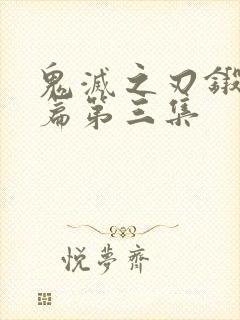 鬼滅之刃鍛
篇第三集
悅夢齋